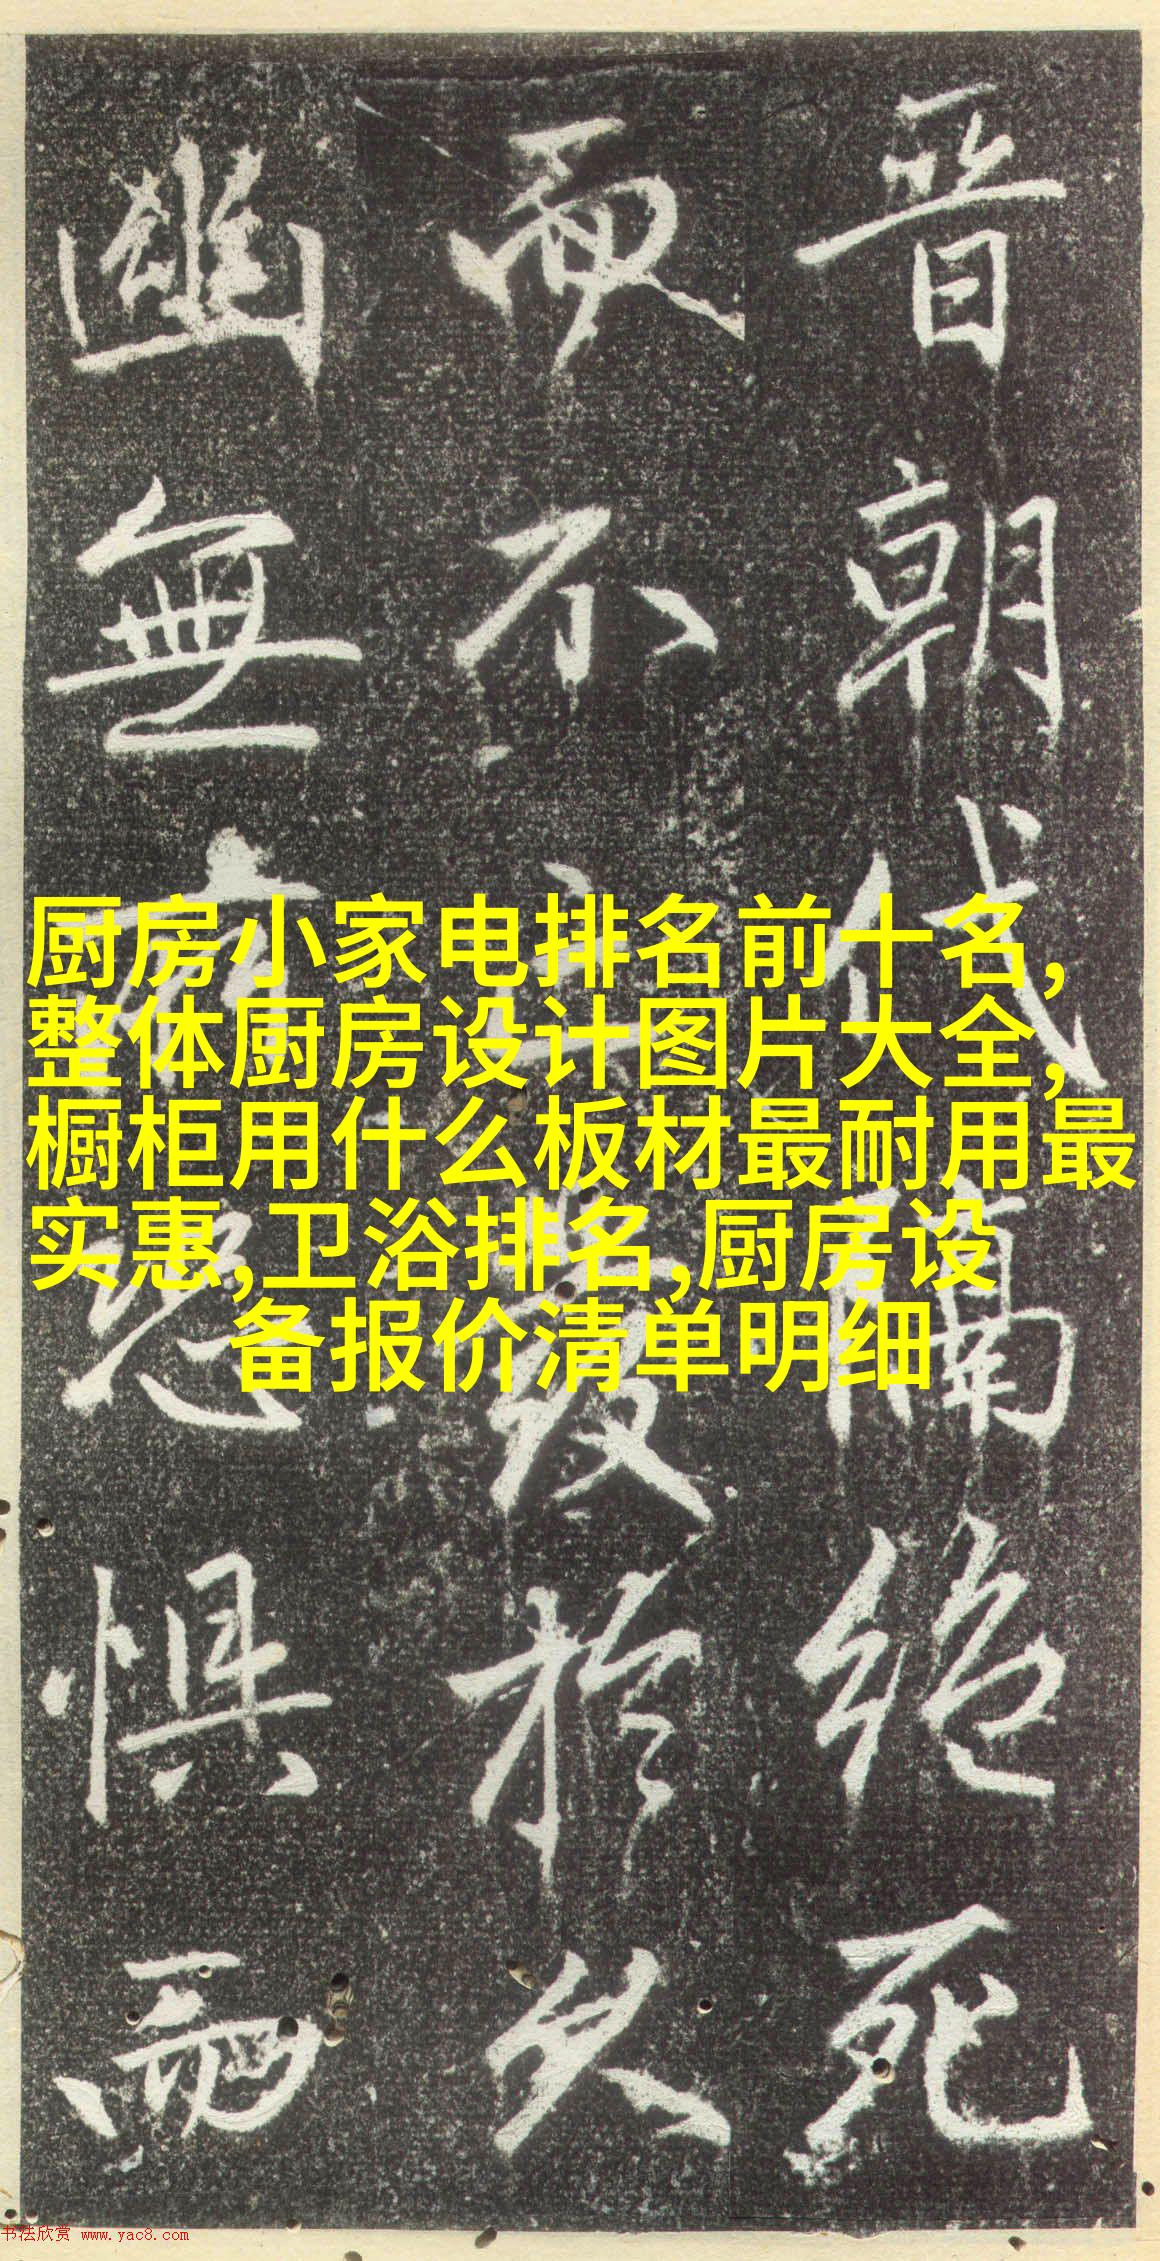 晉朝代隔絕死
而不
於久
幽無
惧而
厨房小家电排名前十名,
整体厨房设计图片大全,
橱柜用什么板材最耐用最
实惠,卫浴排名,厨房设
备报价清单明细
书法欣赏 www.yac8.com